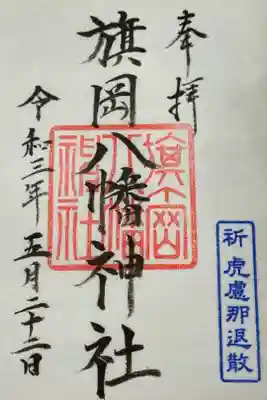 奉拝
旗岡八幡神社
旗岡八幡神社
令和三年 五月二十二日
祈 虎慮那退散